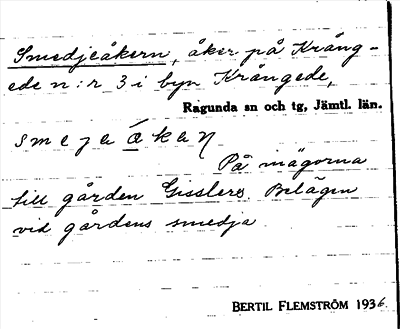 Smedjeåkern, åker på Krång-
ede n:r 3 i byn Krångede,
Ragunda sn och tg, Jämtl. län.
På mägorna
till gården Gisslers. Belägen
vid gårdens smedja
BERTIL FLEMSTRÖM 1936.